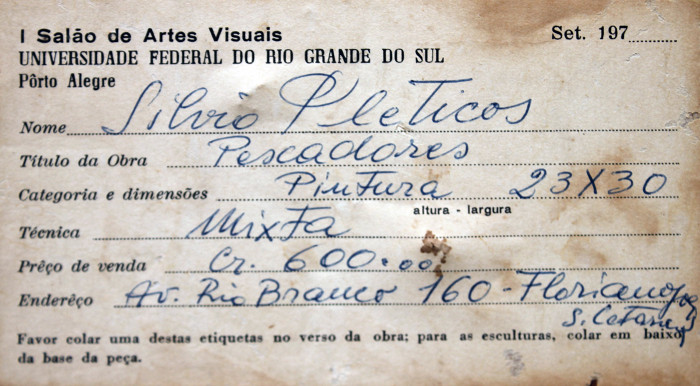 I Salão de Artes Visuais Set. 197
UNIVERSIDADE FEDERAL DO RIO GRANDE DO SUL
Pôrto Alegre
Nome Silvio Pleticos
Título da Obra Pescadores
Categoria e dimensões Pintura 23X30
altura - largura
Técnica Mixta
Prêço de venda Cr. 600.00
Enderêço Av. Rio Branco 160 - Florianop
S. Catarina
Favor colar uma destas etiquetas no verso da obra; para as esculturas, colar em baixo
da base da peça.